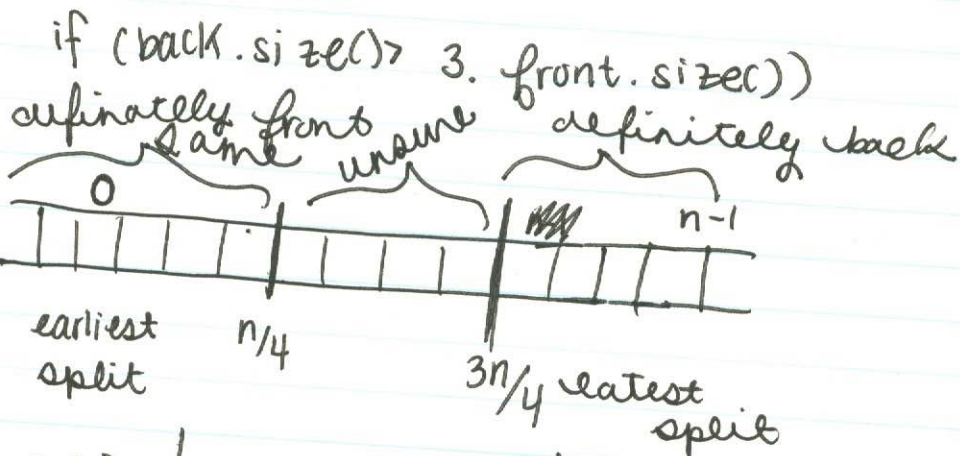 if (back.size()> 3. front.size())
definately front
same
unsure
definitely back
0
n-1
earliest
split
n/4
3n/4 latest
split